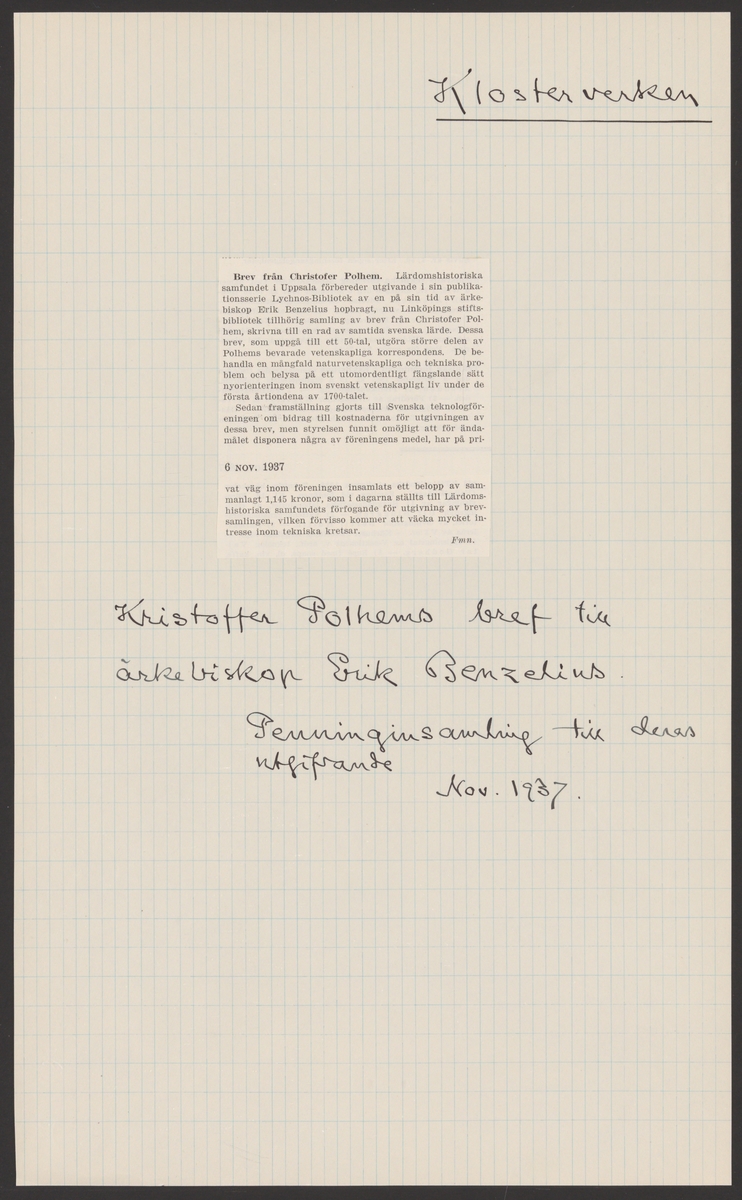 Klosterverken
Brev från Christofer Polhem. Lärdomshistoriska
samfundet i Uppsala förbereder utgivande i sin publika-
tionsserie Lychnos-Bibliotek av en på sin tid av ärke-
biskop Erik Benzelius hopbragt, nu Linköpings stifts-
bibliotek tillhörig samling av brev från Christofer Pol-
hem, skrivna till en rad av samtida svenska lärde. Dessa
brev, som uppgå till ett 50-tal, utgöra större delen av
Polhems bevarade vetenskapliga korrespondens. De be-
handla en mångfald naturvetenskapliga och tekniska pro-
blem och belysa på ett utomordentligt fängslande sätt
nyorienteringen inom svenskt vetenskapligt liv under de
första årtiondena av 1700-talet.
Sedan framställning gjorts till Svenska teknologför-
eningen om bidrag till kostnaderna för utgivningen av
dessa brev, men styrelsen funnit omöjligt att för ända-
målet disponera några av föreningens medel, har på pri-
6 NOV. 1937
vat väg inom föreningen insamlats ett belopp av sam-
manlagt 1,145 kronor, som i dagarna ställts till Lärdoms-
historiska samfundets förfogande för utgivning av brev-
samlingen, vilken förvisso kommer att väcka mycket in-
tresse inom tekniska kretsar.
Fmn.
Kristoffer Polhems bref till
ärkebiskop Erik Benzelius.
Penninginsamling till deras
utgifvande
Nov. 1937.